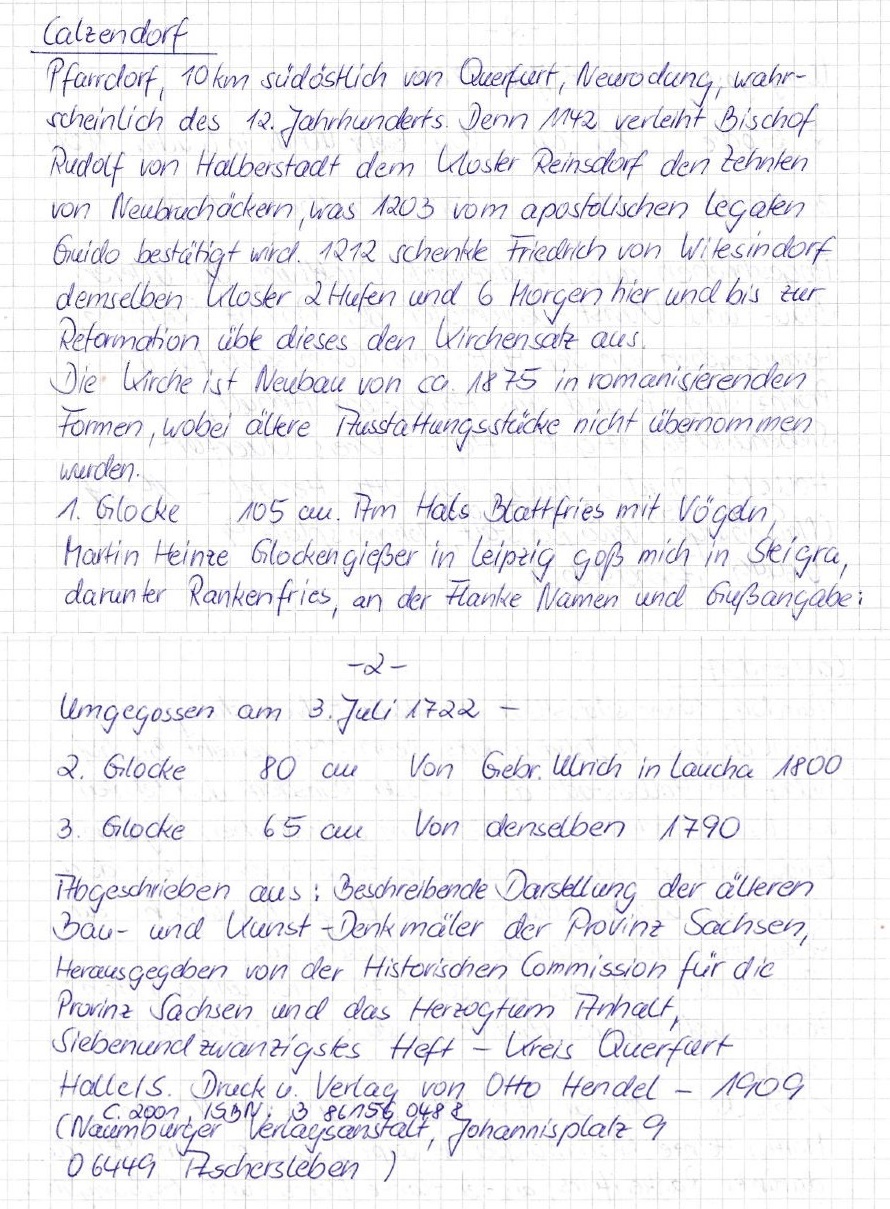 Calzendorf
Pfarrdorf, 10 km südöstlich von Querfurt, Neurodung, wahr-
scheinlich des 12. Jahrhunderts. Denn 1142 verleiht Bischof
Rudolf von Halberstadt dem Kloster Reinsdorf den Zehnten
von Neubruchäckern, was 1203 vom apostolischen Legaten
Guido bestätigt wird. 1212 schenkte Friedrich von Witesindorf
demselben Kloster 2 Hufen und 6 Morgen hier und bis zur
Reformation übte dieses den Kirchensatz aus.
Die Kirche ist Neubau von ca. 1875 in romanisierenden
Formen, wobei ältere Ausstattungsstücke nicht übernommen
wurden.
1. Glocke 105 cm. Am Hals Blattfries mit Vögeln,
Martin Heinze Glockengießer in Leipzig goß mich in Steigra,
darunter Rankenfries, an der Flanke Namen und Gußangabe:
-2-
Umgegossen am 3. Juli 1722 -
2. Glocke 80 cm Von Gebr. Ulrich in Laucha 1800
3. Glocke 65 cm Von denselben 1790
Abgeschrieben aus: Beschreibende Darstellung der älteren
Bau- und Kunst-Denkmäler der Provinz Sachsen,
Herausgegeben von der Historischen Commission für die
Provinz Sachsen und das Herzogtum Anhalt,
Siebenundzwanzigstes Heft - Kreis Querfurt
Halle/S. Druck u. Verlag von Otto Hendel - 1909
C. 2001, ISBN: 3 86156 048 8
(Naumburger Verlagsanstalt, Johannisplatz 9
06449 Aschersleben)